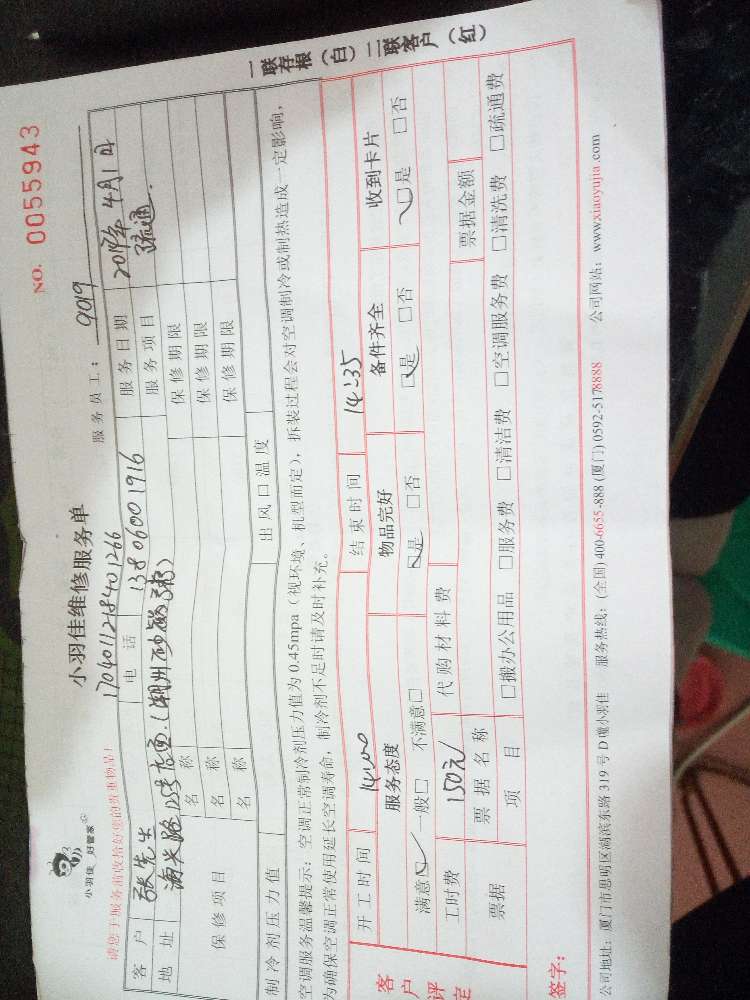 小羽佳 好管家
小羽佳维修服务单
NO. 0055943
请您于服务前收拾好您的贵重物品!
1704011218401266
服务员工: 9019
客户 张先生 电话 13806001916 服务日期 2017年4月1日
地址 125号店面(潮州砂锅粥) 服务项目 疏通
保修项目 名称 保修期限
名称 保修期限
名称 保修期限
制冷剂压力值 出风口温度
空调服务温馨提示: 空调正常制冷剂压力值为 0.45mpa(视环境、机型而定),拆装过程会对空调制冷或制热造成一定影响,
为确保空调正常使用延长空调寿命,制冷剂不足时请及时补充。
开工时间 14:00 结束时间 14:35
客户评定 服务态度 物品完好 备件齐全 收到卡片
满意☑ 一般□ 不满意□ ☑是 □否 ☑是 □否 ☑是 □否
工时费 150元 代购材料费
票据 票据名称 票据金额
项目 □搬办公用品 □服务费 □清洁费 □空调服务费 □清洗费 □疏通费
签字:
公司地址: 厦门市思明区湖滨东路 319 号 D 幢小羽佳 服务热线: (全国) 400-6655-888 (厦门) 0592-5178888 公司网站: www.xiaoyujia.com
一联存根(白)二联客户(红)